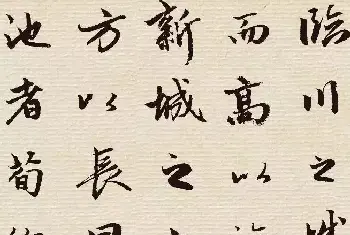 臨川之城
而高以
新城之
方以長
池者荀